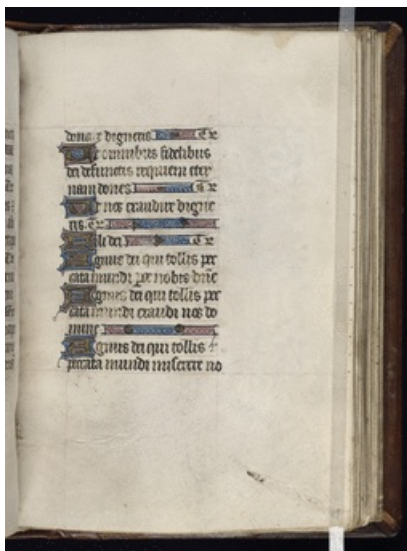 donare digneris Te
Ut omnibus fidelibus
dei defunctis requiem eter
nam dones Te
Ut nos exaudire digne
ris. Te
Fili dei Te
Agnus dei qui tollis pec
cata mundi parce nobis dñe
Agnus dei qui tollis pec
cata mundi exaudi nos do
mine
Agnus dei qui tollis
peccata mundi miserere no